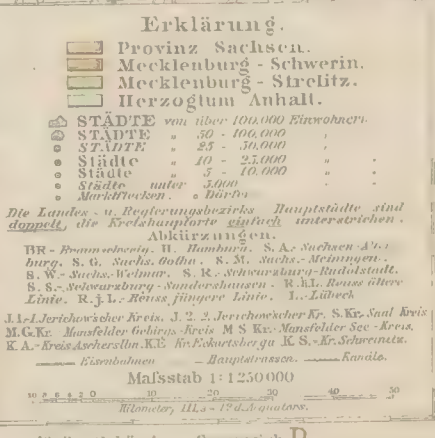 Erklärung.
Provinz Sachsen.
Mecklenburg - Schwerin.
Mecklenburg - Strelitz.
Herzogtum Anhalt.
STÄDTE von über 100.000 Einwohnern.
STÄDTE " 50 - 100.000 "
STÄDTE " 25 - 50.000 "
Städte " 10 - 25.000 " "
Städte " 5 - 10.000 " "
Städte unter 5.000 "
Marktflecken. Dörfer
Die Landes - u. Regierungsbezirks Hauptstädte sind
doppelt, die Kreishauptorte einfach unterstrichen.
Abkürzungen.
BR - Braunschweig. H. Hamburg. S. A.- Sachsen-Alten
burg. S. G. Sachs. Gotha. S. M. Sachs.- Meiningen.
S. W.- Sachs.-Weimar. S. R.- Schwarzburg-Rudolstadt.
S. S.- Schwarzburg-Sondershausen. R.ä.L. Reuss ältere
Linie. R. j. L.- Reuss jüngere Linie. L.- Lübeck
J. 1.-1. Jerichow'scher Kreis. J. 2. 2. Jerichow'scher Kr. S. Kr.- Saal Kreis
M.G.Kr. Mansfelder Gebirgs-Kreis M S Kr.- Mansfelder See-Kreis.
K. A.- Kreis Aschersllbn. K.E Kr. Eckartsberga K. S.- Kr. Schweinitz.
Eisenbahnen Hauptstrassen. Kanäle.
Maſsstab 1:1250000
10 8 6 4 2 0 10 20 30 40 50
Kilometer, 111,3 = 1° d. Aequators.